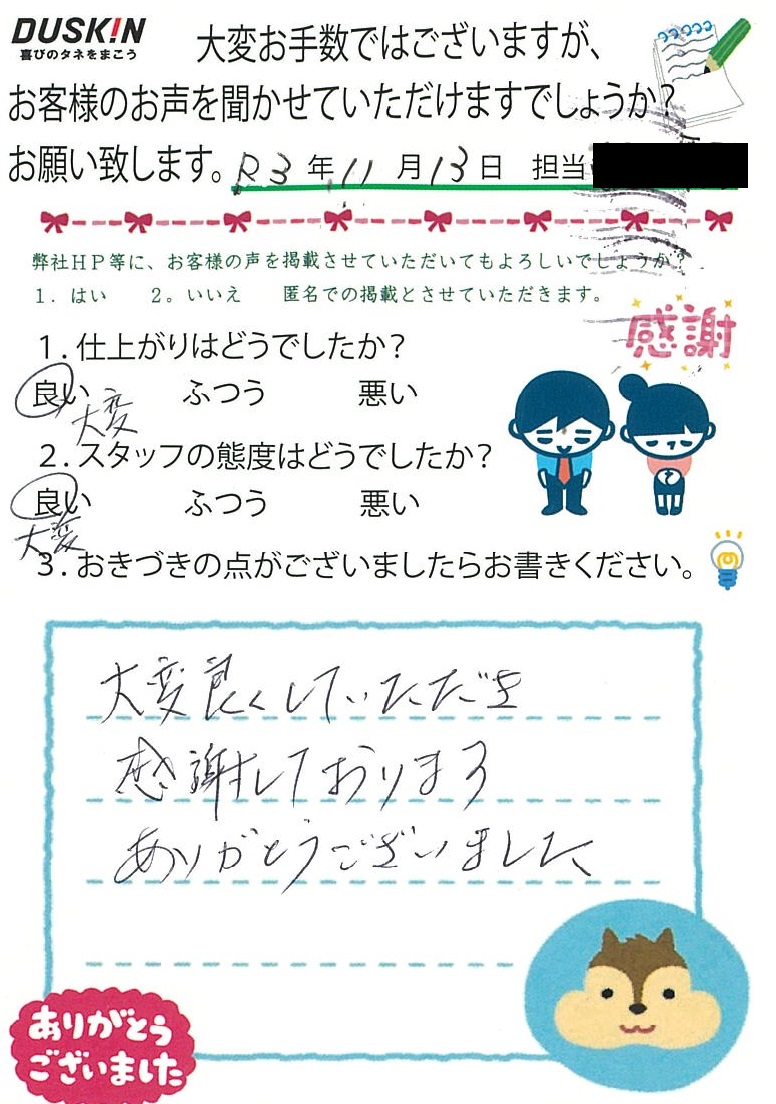 DUSK!N
喜びのタネをまこう
大変お手数ではございますが、
お客様のお声を聞かせていただけますでしょうか?
お願い致します。R3年11月13日 担当
弊社HP等に、お客様の声を掲載させていただいてもよろしいでしょうか?
1. はい 2。いいえ 匿名での掲載とさせていただきます。
感謝
1.仕上がりはどうでしたか?
良い ふつう 悪い
大変
2.スタッフの態度はどうでしたか?
良い ふつう 悪い
大変
3.おきづきの点がございましたらお書きください。
大変良くしていただき
感謝しております
ありがとうございました
ありがとう
ございました